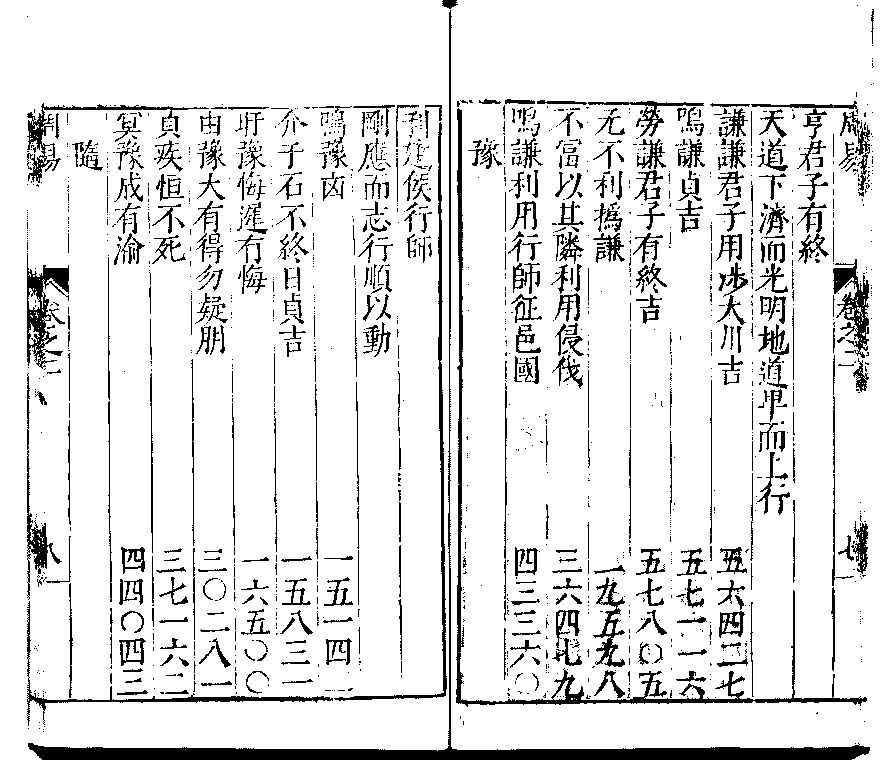 周易 卷之二 七
亨君子有終
天道下濟而光明地道卑而上行
謙謙君子用涉大川吉 五六四二七
鳴謙貞吉 五七一一六
勞謙君子有終吉 五七八〇五
无不利撝謙 一九五九八
不富以其隣利用侵伐 三六四七九
鳴謙利用行師征邑國 四三三六〇
豫
利建侯行師
剛應而志行順以動
鳴豫凶 一五一四二
介于石不終日貞吉 一五八三一
盱豫悔遲有悔 一六五〇〇
由豫大有得勿疑朋 三〇二八一
貞疾恒不死 三七一六二
冥豫成有渝 四四〇四三
隨
周易 卷之二 八